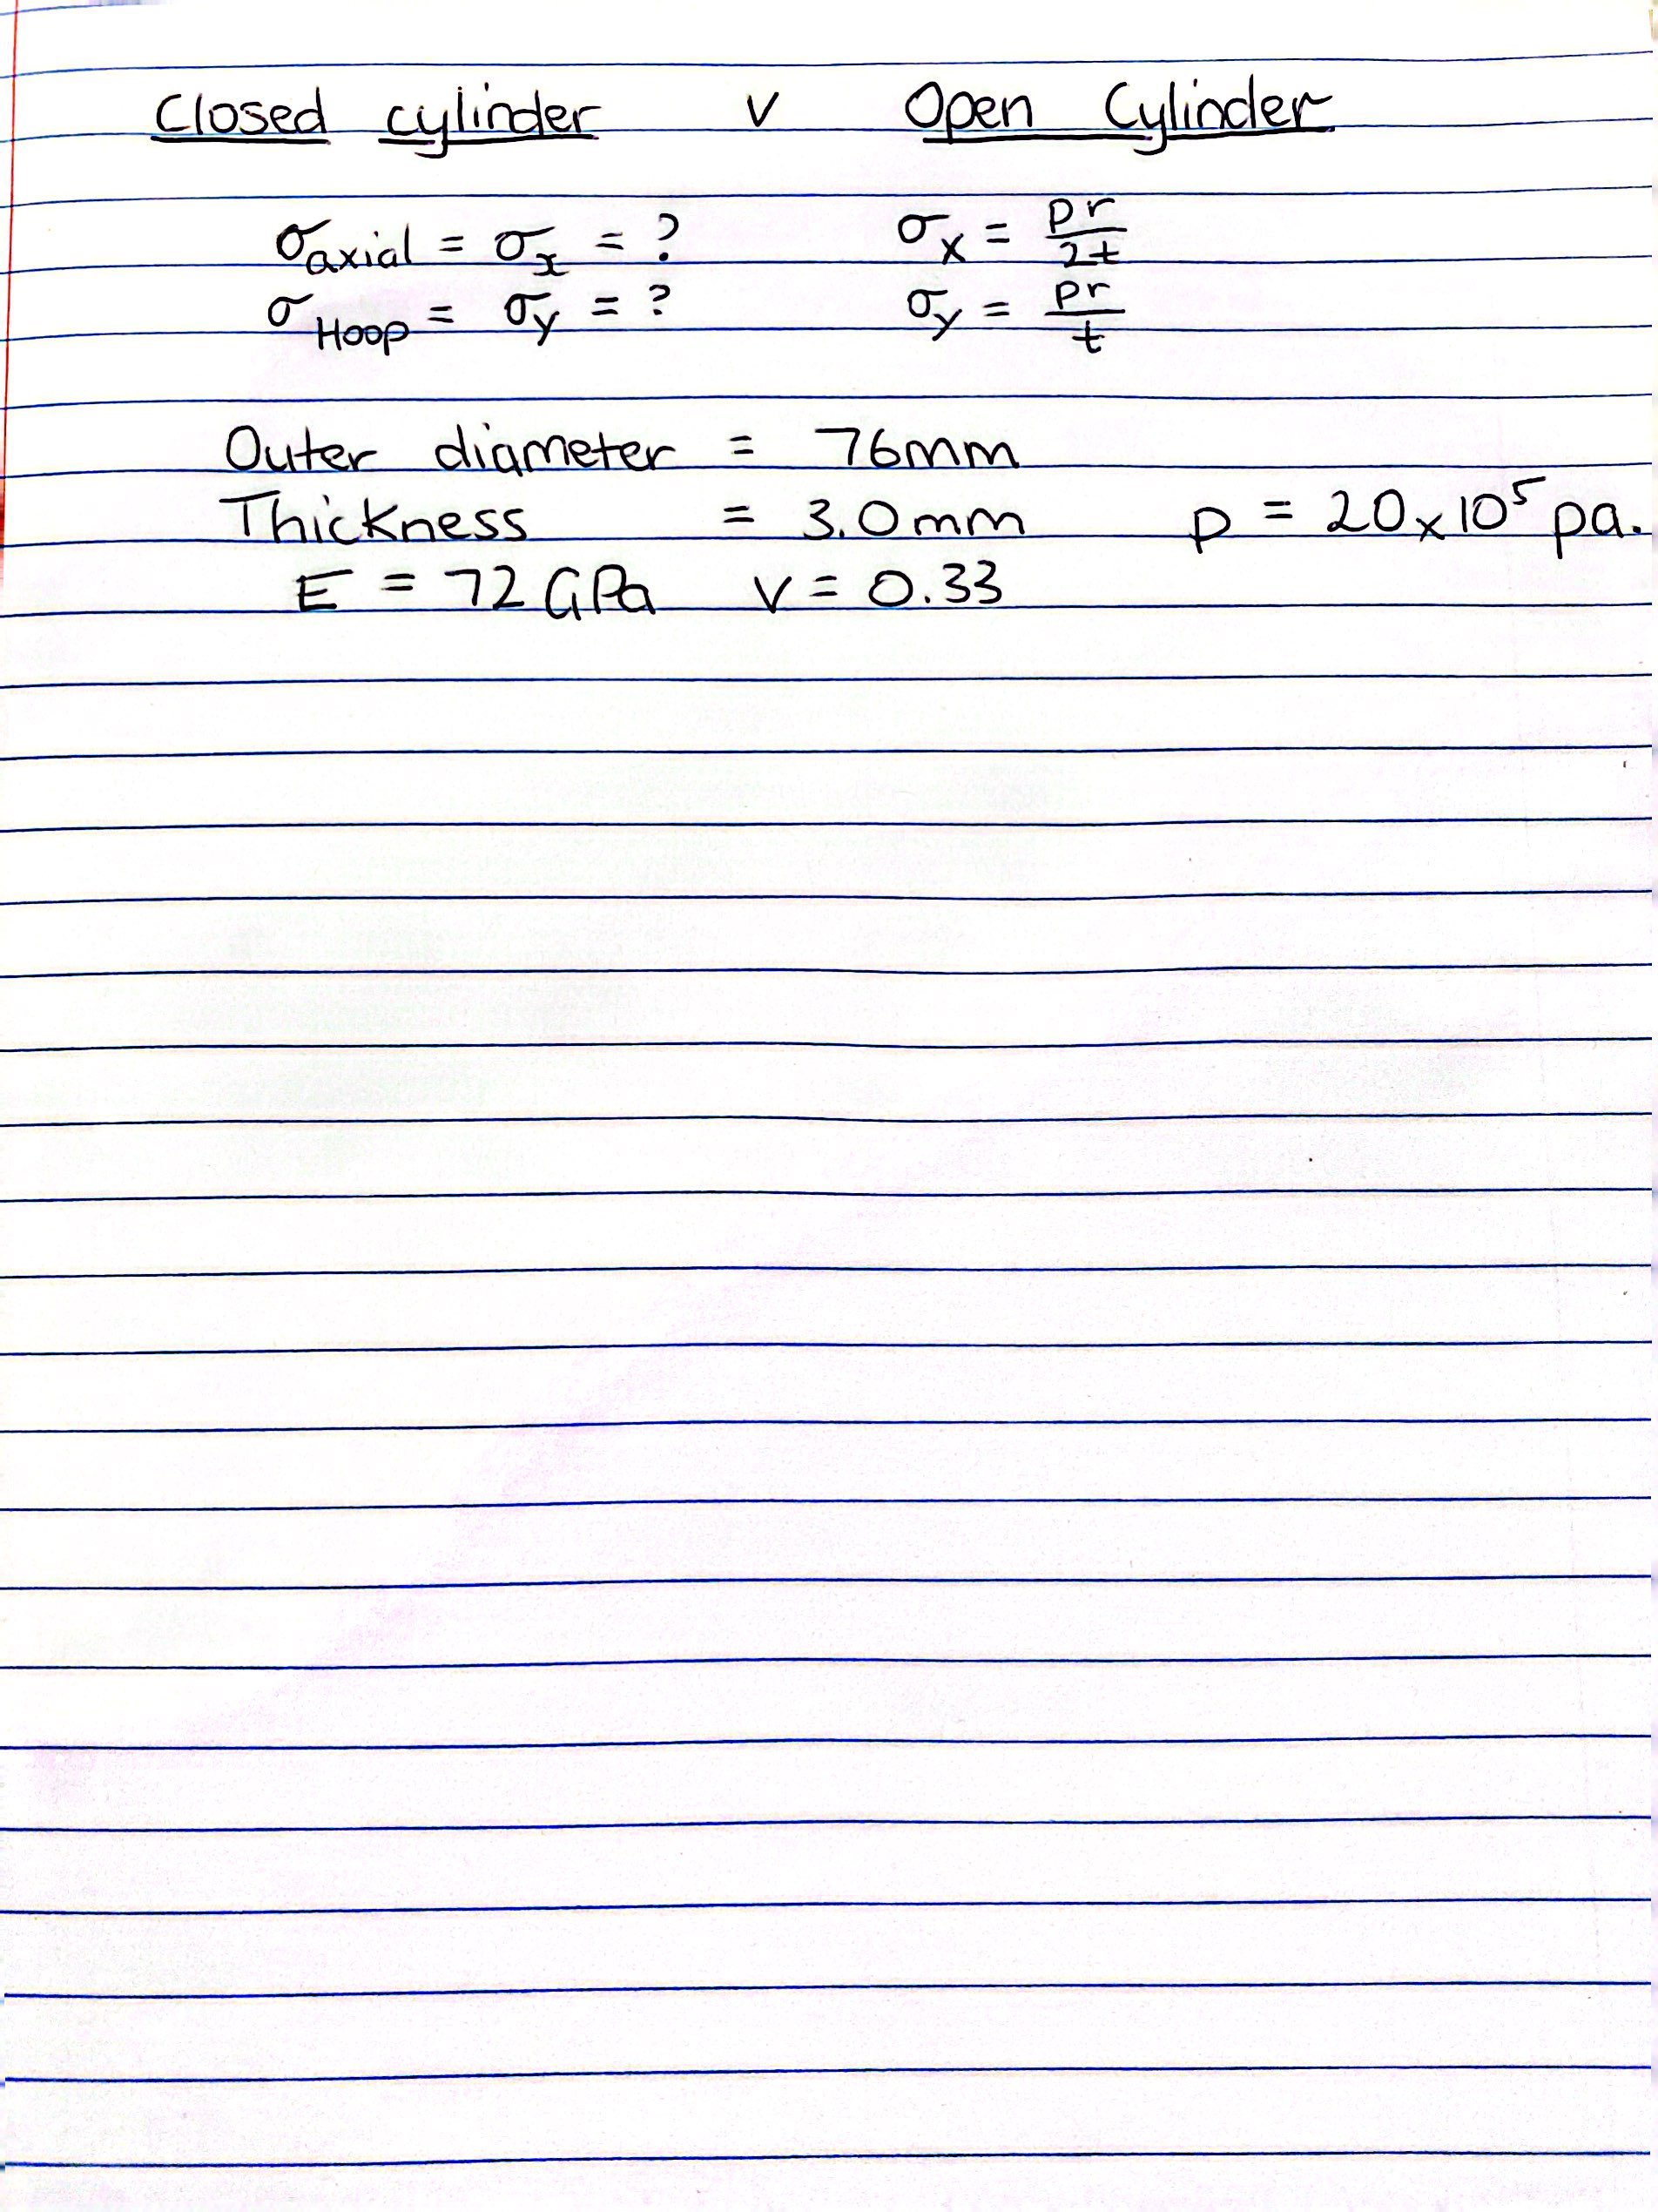 Closed cylinder v Open Cylinder
σaxial = σx = ? σx = pr/2t
σHoop = σy = ? σy = pr/t
Outer diameter = 76mm
Thickness = 3.0mm p = 20x10⁵ pa.
E = 72 GPa v = 0.33